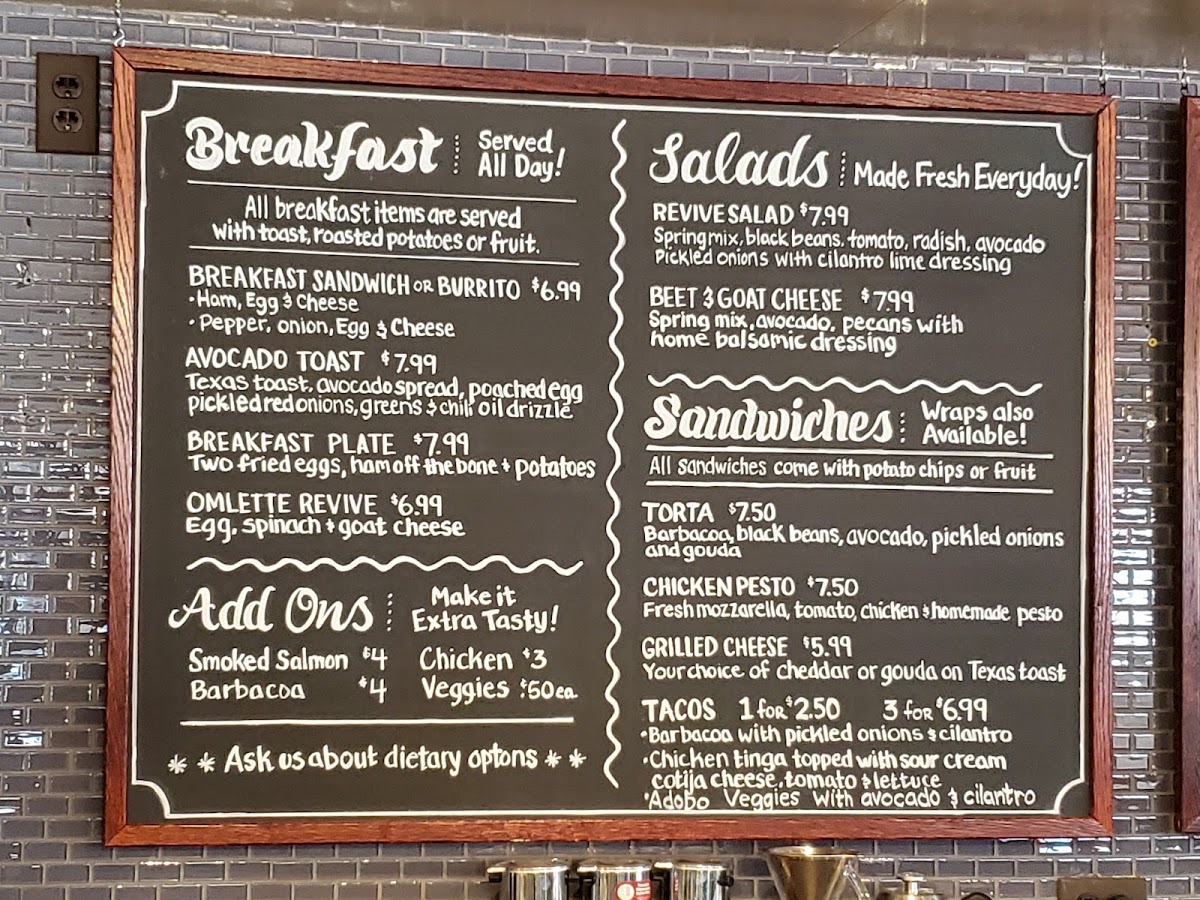 Breakfast
Served
All Day!
All breakfast items are served
with toast, roasted potatoes or fruit.
BREAKFAST SANDWICH OR BURRITO $6.99
• Ham, Egg & Cheese
• Pepper, onion, Egg & Cheese
AVOCADO TOAST $7.99
Texas toast, avocado spread, poached egg
pickled red onions, greens & chili oil drizzle
BREAKFAST PLATE $7.99
Two fried eggs, ham off the bone + potatoes
OMLETTE REVIVE $6.99
Egg, spinach + goat cheese
Add Ons
Make it
Extra Tasty!
Smoked Salmon $4
Chicken $3
Barbacoa $4
Veggies $.50 ea.
* * Ask us about dietary optons * *
Salads
Made Fresh Everyday!
REVIVE SALAD $7.99
Spring mix, black beans, tomato, radish, avocado
Pickled onions with cilantro lime dressing
BEET & GOAT CHEESE $7.99
Spring mix, avocado, pecans with
home balsamic dressing
Sandwiches
Wraps also
Available!
All sandwiches come with potato chips or fruit
TORTA $7.50
Barbacoa, black beans, avocado, pickled onions
and gouda
CHICKEN PESTO $7.50
Fresh mozzarella, tomato, chicken & homemade pesto
GRILLED CHEESE $5.99
Your choice of cheddar or gouda on Texas toast
TACOS 1 for $2.50 3 for $6.99
• Barbacoa with pickled onions & cilantro
• Chicken tinga topped with sour cream
cotija cheese, tomato & lettuce
• Adobo Veggies with avocado & cilantro